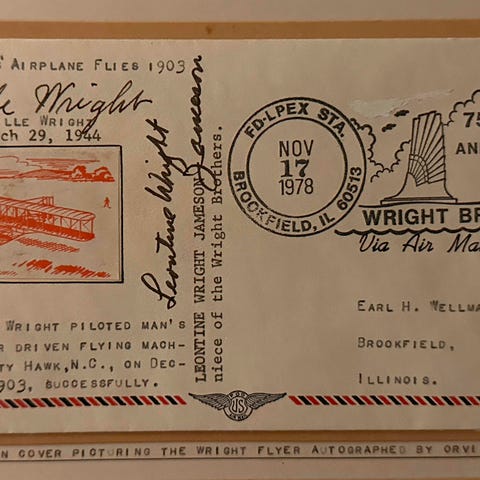 AIRPLANE FLIES 1903
Wright
LLE WRIGHT
ch 29, 1944
Leontine Wright Jameson
LEONTINE WRIGHT JAMESON
niece of the Wright Brothers.
FD-LPEX STA.
NOV
17
1978
BROOKFIELD, IL 60513
75
AN
WRIGHT BR
Via Air Ma
WRIGHT PILOTED MAN'S
R DRIVEN FLYING MACH-
TY HAWK, N.C., ON DEC-
903, SUCCESSFULLY.
EARL H. WELLMA
BROOKFIELD,
ILLINOIS.
US
N COVER PICTURING THE WRIGHT FLYER AUTOGRAPHED BY ORVI